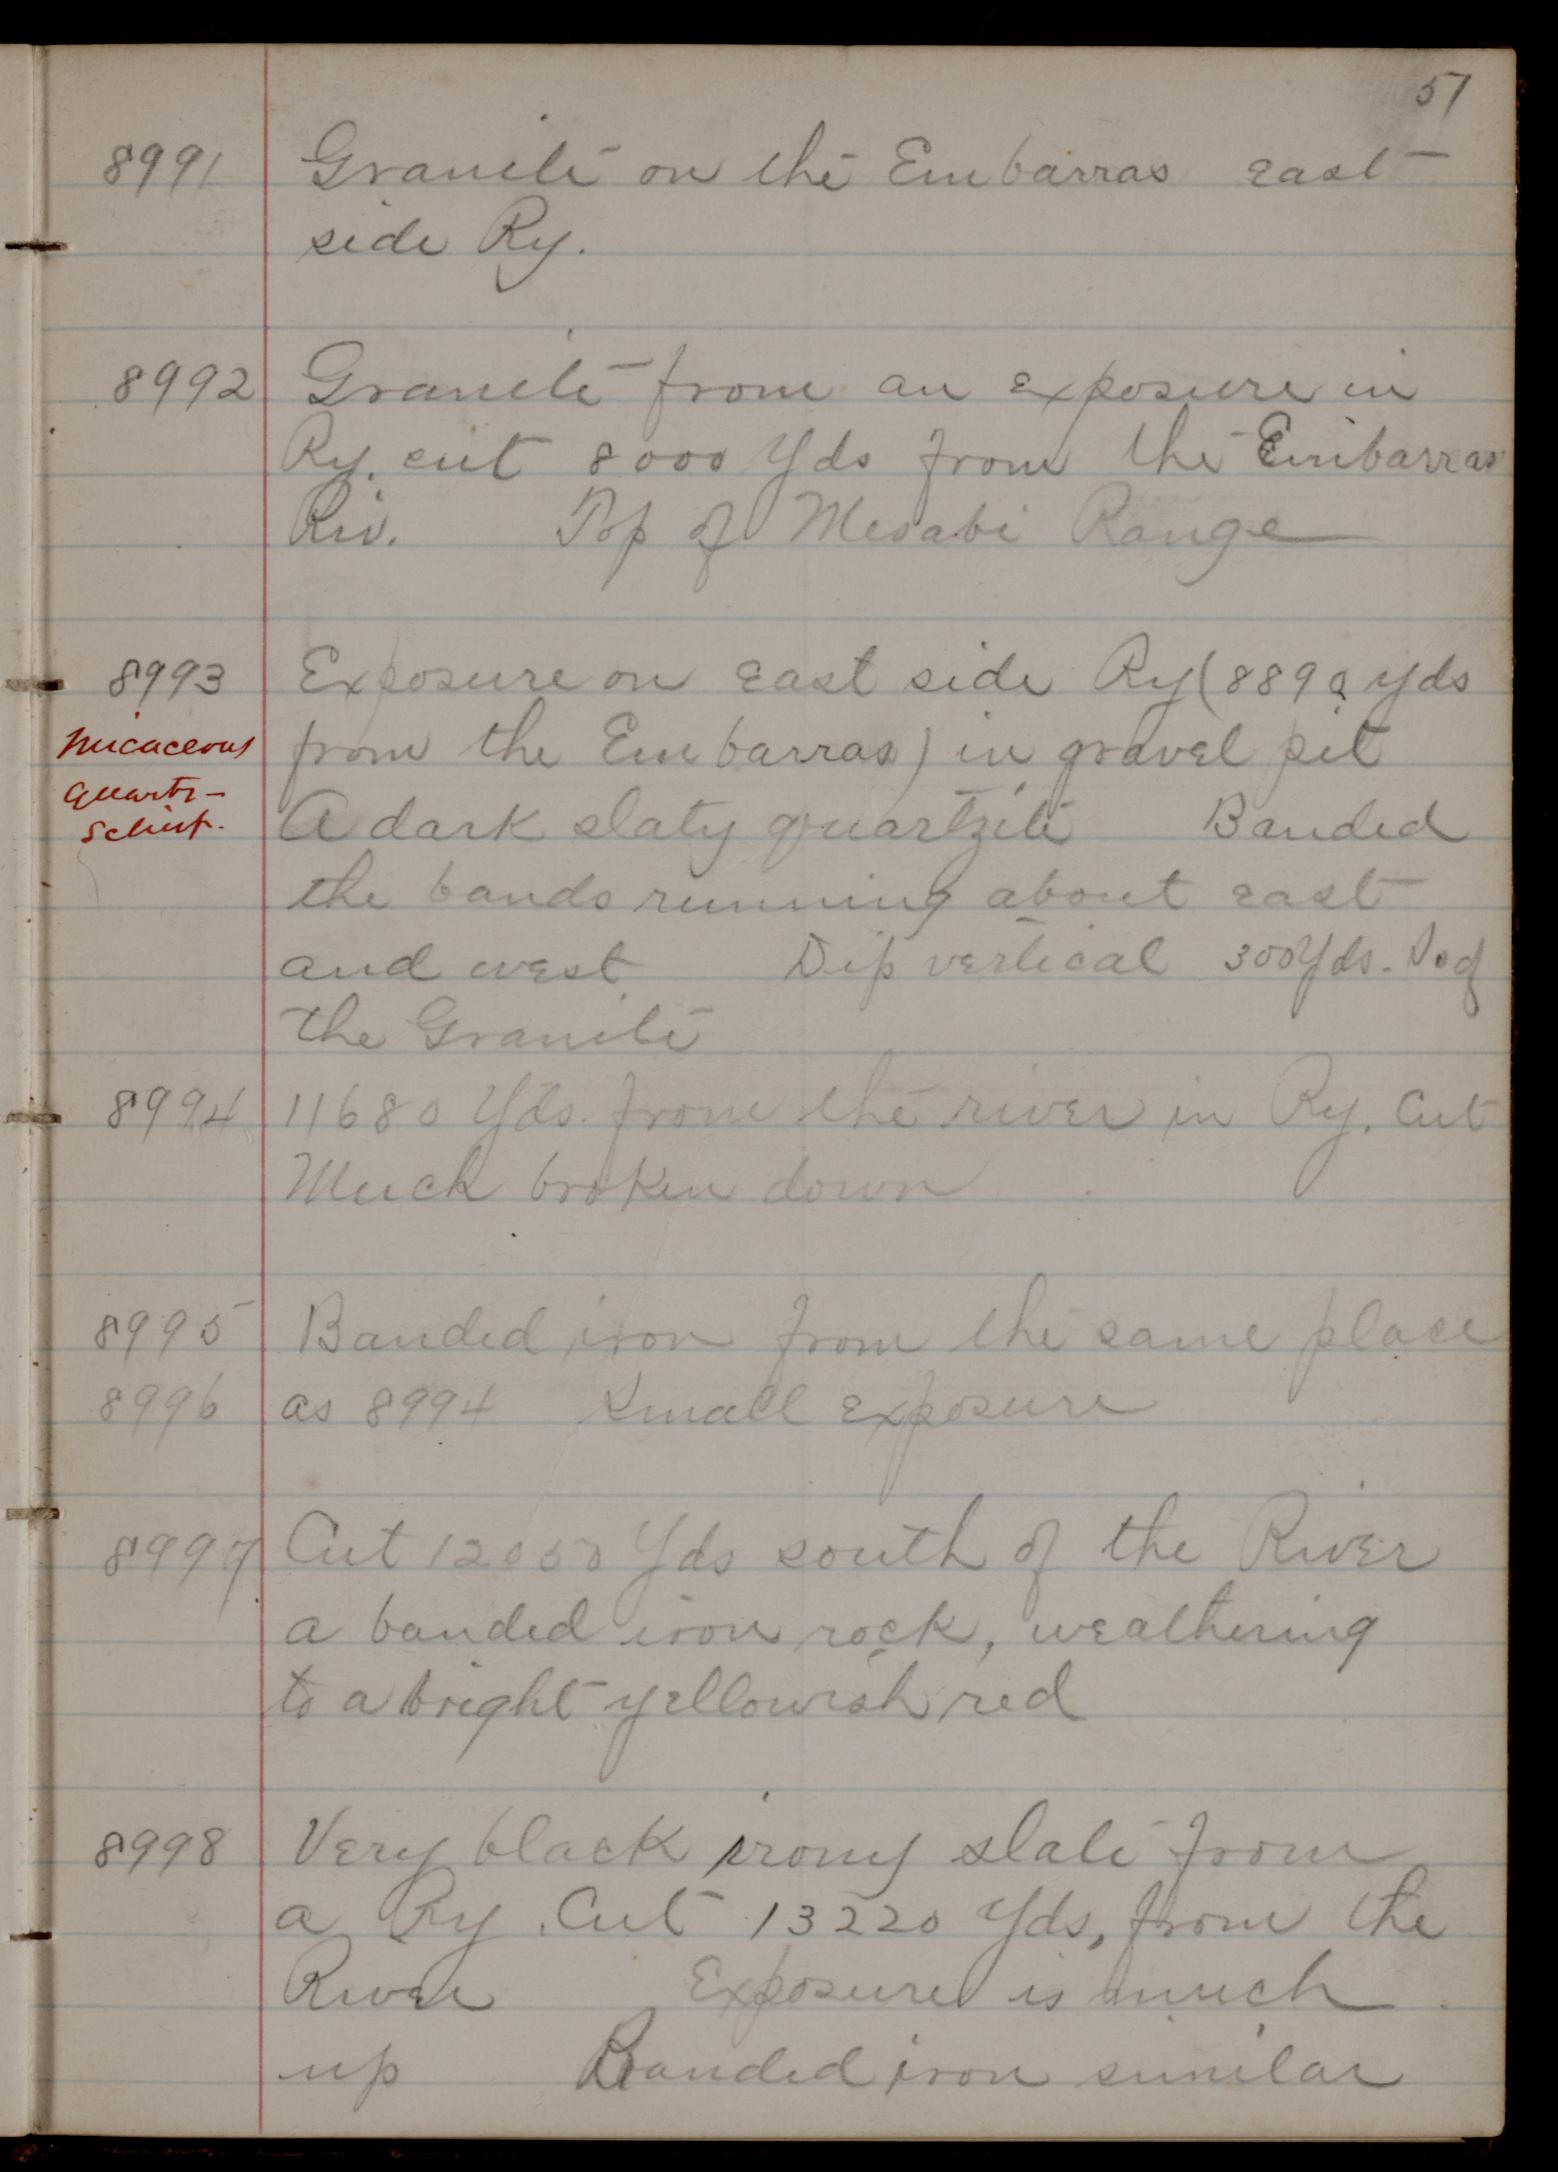 51
8991 Granite on the Embarras east
side Ry.
8992 Granite from an exposure in
Ry. cut 8000 Yds from the Embarras
Riv. Top of Mesabi Range
8993 Exposure on east side Ry (8890 yds
micaceous from the Embarras) in gravel pit
quartz-
schist. A dark slaty quartzite Banded
the bands running about east
and west Dip vertical 300 Yds. S of
the Granite
8994 11680 Yds. from the river in Ry. Cut
Much broken down
8995 Banded iron from the same place
8996 as 8994 Small exposure
8997 Cut 12050 Yds south of the River
a banded iron rock, weathering
to a bright yellowish red
8998 Very black irony slate from
a Ry. Cut 13220 Yds, from the
River Exposure is much
up Banded iron similar